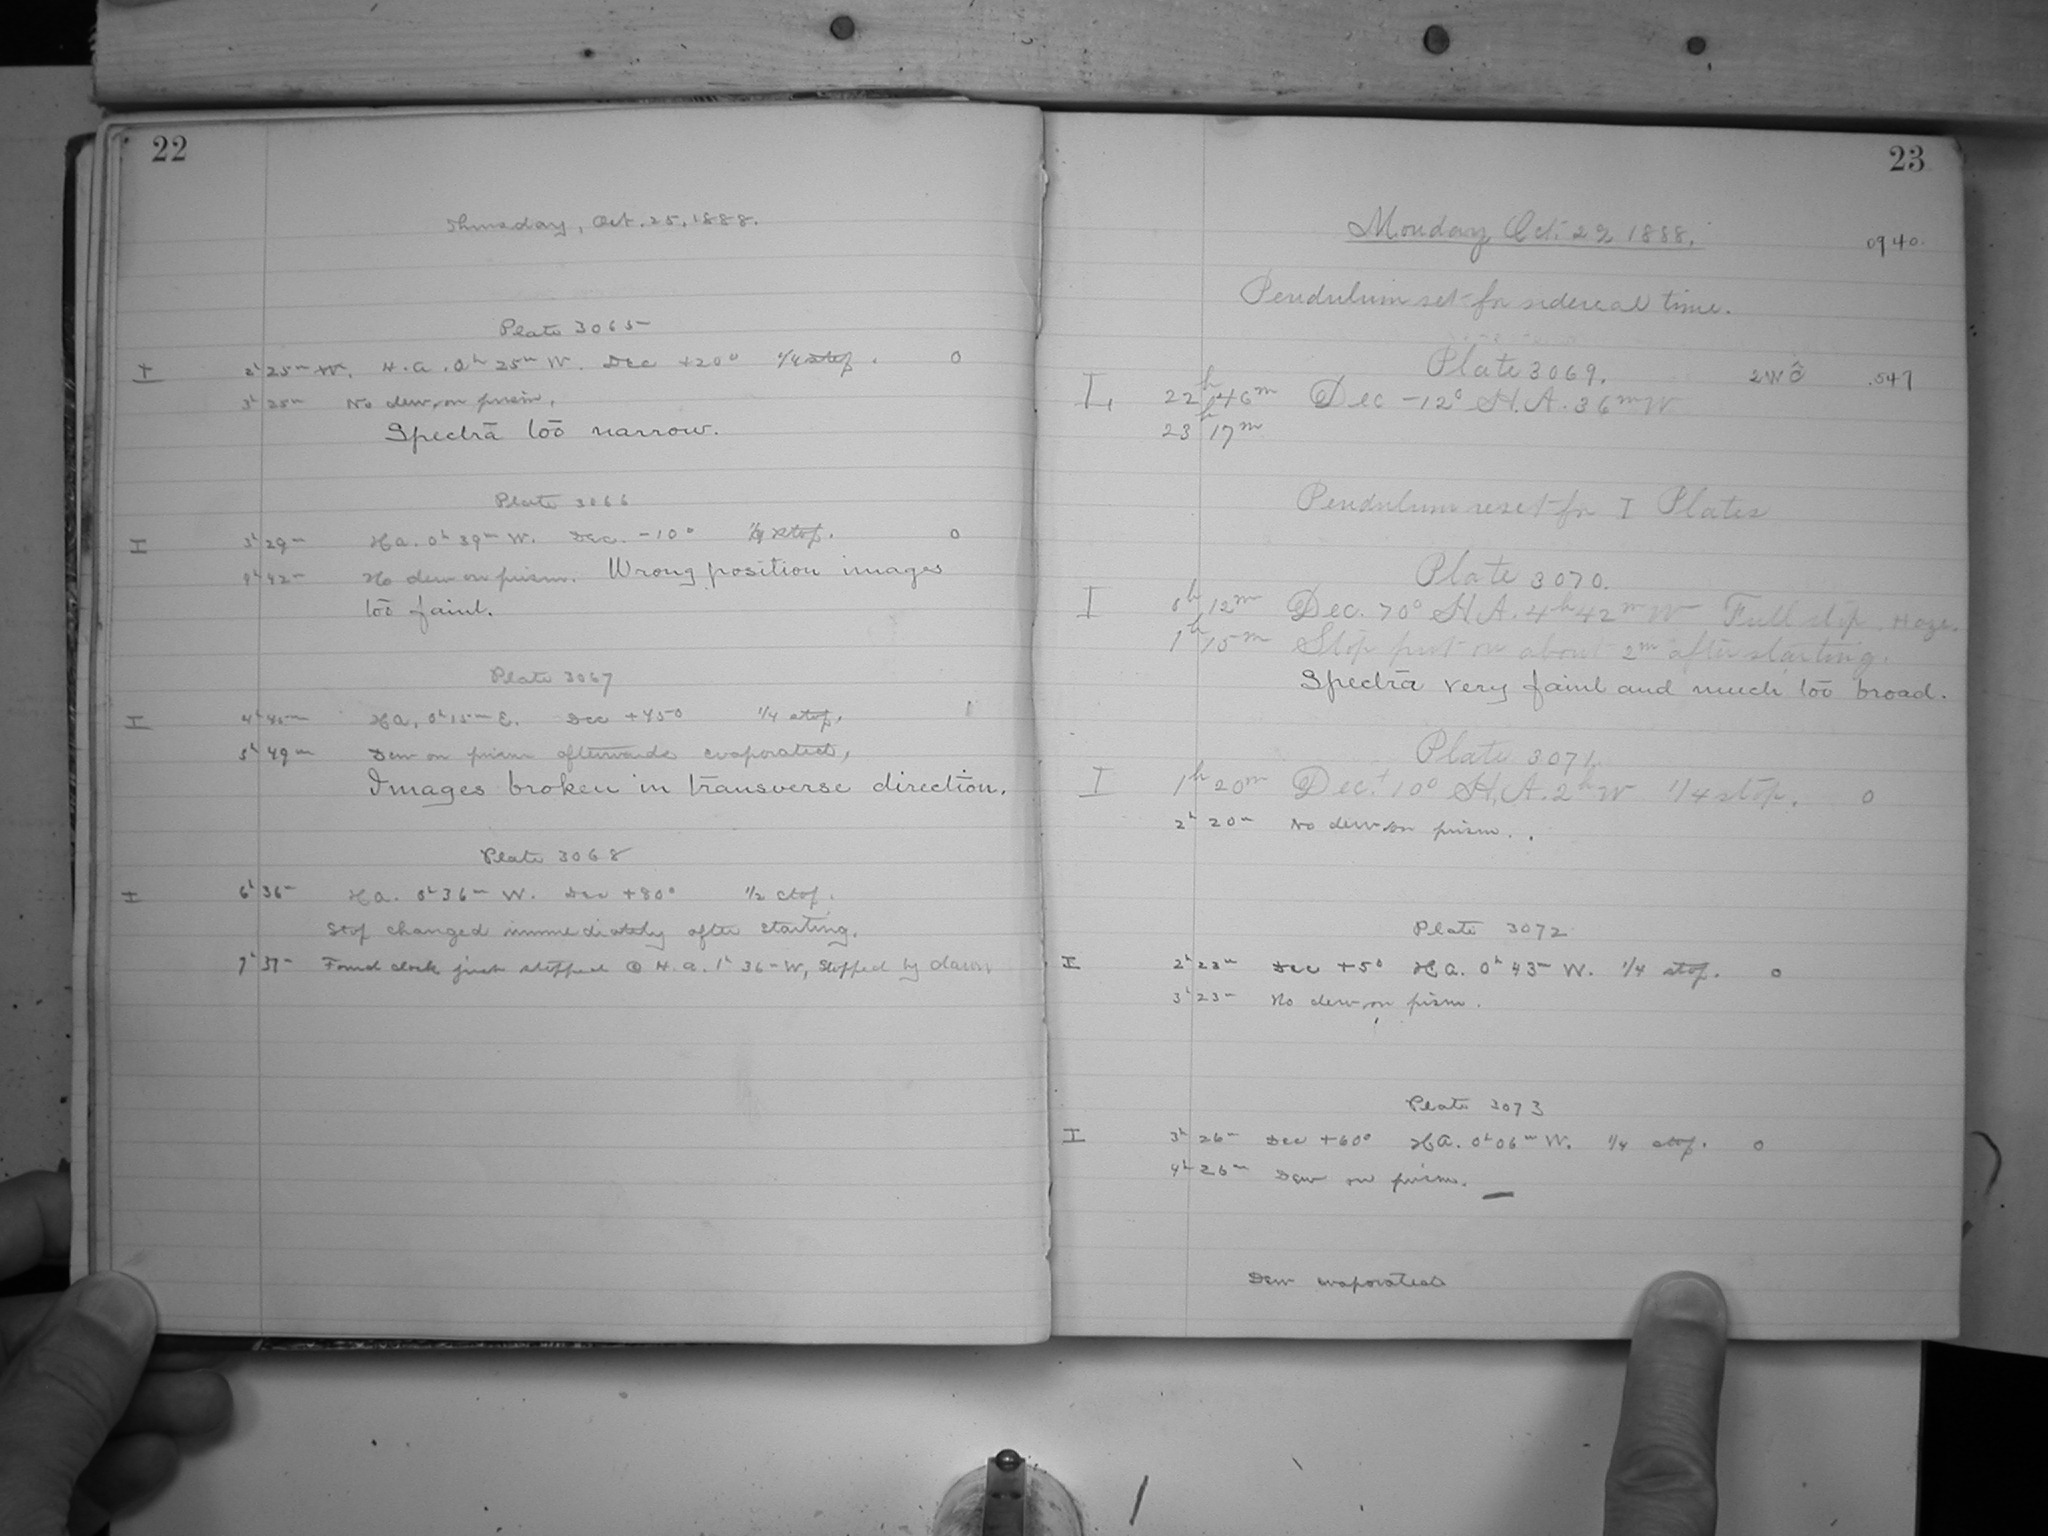 22
Thursday, Oct. 25, 1888.
Plate 3065
I 2h 25m W. H.a. 0h 25m W. Dec +20° 1/4 stop. 0
3h 25m No dew on prism.
Spectra too narrow.
Plate 3066
I 3h 29m H a. 0h 39m W. Dec. -10° 1/4 stop. 0
4h 42m No dew on prism. Wrong position images
too faint.
Plate 3067
I 4h 45m H a. 0h 15m E. Dec +45° 1/4 stop. 1
5h 49m Dew on prism afterwards evaporated,
Images broken in transverse direction.
Plate 3068
I 6h 36m H a. 0h 36m W. Dec +80° 1/2 stop.
Stop changed immediately after starting.
7h 37m Found clock just stopped @ H.a. 1h 36m W, Stopped by dawn
23
Monday Oct. 29 1888.
0940.
Pendulum set for sidereal time.
Plate 3069. .547
I, 22h 46m Dec -12° H.A. 36m W
23h 17m
Pendulum reset for I Plates
Plate 3070.
I 0h 12m Dec. 70° H.A. 4h 42m W Full stop. Haze.
1h 15m Stop put on about 2m after starting.
Spectra very faint and much too broad.
Plate 3071.
I 1h 20m Dec. +10° H.A. 2h W 1/4 stop. 0
2h 20m No dew on prism.
Plate 3072
I 2h 23m Dec +5° H a. 0h 43m W. 1/4 stop. 0
3h 23m No dew on prism.
Plate 3073
I 3h 26m Dec +60° H a. 0h 06m W. 1/4 stop. 0
4h 26m Dew on prism.
Dew evaporated